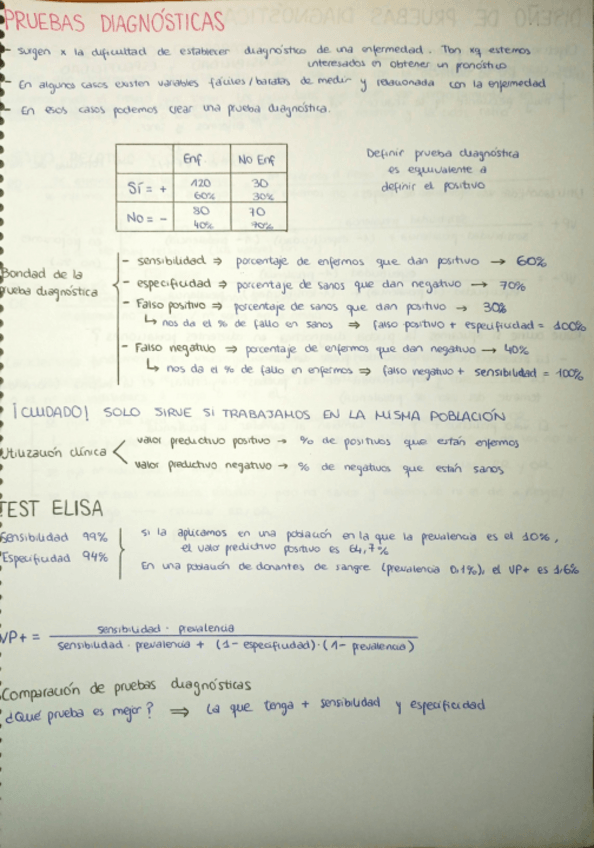 PRUEBAS DIAGNÓSTICAS
- Surgen x la dificultad de establecer diagnóstico de una enfermedad. Tbn xq estemos
interesados en obtener un pronóstico
- En algunos casos existen variables fáciles/baratas de medir y relacionada con la enfermedad
- En esos casos podemos crear una prueba diagnóstica.
Enf No Enf
Sí = + 120 30
60% 30%
No = - 80 70
40% 70%
Definir prueba diagnóstica
es equivalente a
definir el positivo
Bondad de la
prueba diagnóstica
- sensibilidad ⇒ porcentaje de enfermos que dan positivo → 60%
- especificidad ⇒ porcentaje de sanos que dan negativo → 70%
- Falso positivo ⇒ porcentaje de sanos que dan positivo → 30%
↳ nos da el % de fallo en sanos ⇒ falso positivo + especificidad = 100%
- Falso negativo ⇒ porcentaje de enfermos que dan negativo → 40%
↳ nos da el % de fallo en enfermos ⇒ falso negativo + sensibilidad = 100%
¡CUIDADO! SOLO SIRVE SI TRABAJAMOS EN LA MISMA POBLACIÓN
Utilización clínica
valor predictivo positivo → % de positivos que están enfermos
valor predictivo negativo → % de negativos que están sanos
TEST ELISA
Sensibilidad 99%
Especificidad 94%
Si la aplicamos en una población en la que la prevalencia es el 10%,
el valor predictivo positivo es 64,7%
En una población de donantes de sangre (prevalencia 0.1%), el VP+ es 1.6%
VP+ = sensibilidad · prevalencia
sensibilidad · prevalencia + (1 - especificidad) · (1 - prevalencia)
Comparación de pruebas diagnósticas
¿Qué prueba es mejor? ⇒ La que tenga + sensibilidad y especificidad